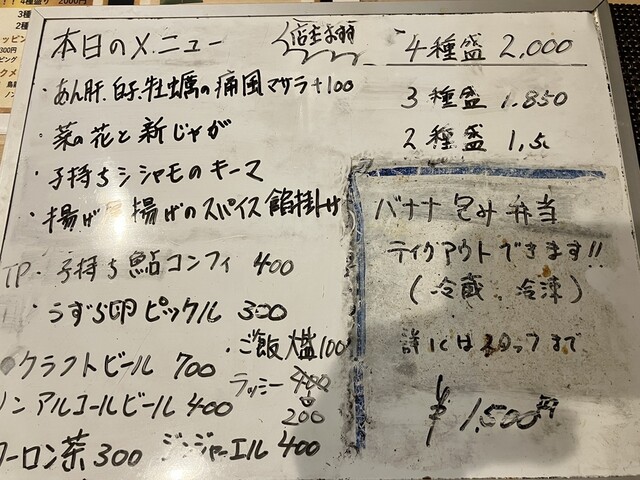 4種盛り 2000円
3種
2種
本日のメニュー
4種盛 2,000
・あん肝、白子、牡蠣の痛風マサラ+100
3種盛 1.850
・菜の花と新じゃが
2種盛 1,5
・子持ちシシャモのキーマ
・揚げ 揚げのスパイス餡掛け
バナナ包み弁当
テイクアウトできます!!
(冷蔵、冷凍)
詳しくはスタッフまで
¥1,500円
TP・子持ち鮎コンフィ 400
・うずら卵ピックル 300
・ご飯大盛100
クラフトビール 700
ラッシー 400
200
ノンアルコールビール 400
ウーロン茶 300 ジンジャーエール 400